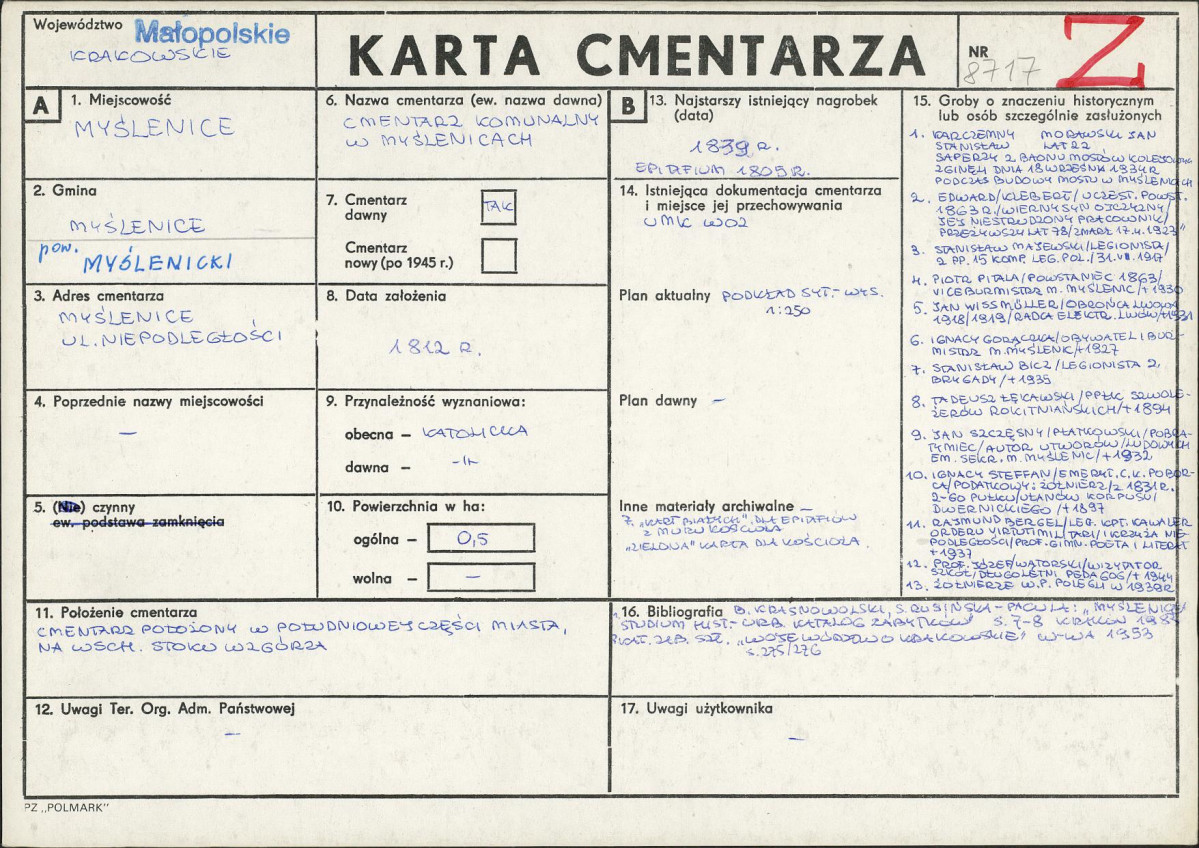 Województwo Małopolskie
KRAKOWSKIE
KARTA CMENTARZA
NR
8717
Z
A
1. Miejscowość
MYŚLENICE
2. Gmina
MYŚLENICE
pow.
MYŚLENICKI
3. Adres cmentarza
MYŚLENICE
UL. NIEPODLEGŁOŚCI
4. Poprzednie nazwy miejscowości
–
5. (Nie) czynny
ew. podstawa zamknięcia
6. Nazwa cmentarza (ew. nazwa dawna)
CMENTARZ KOMUNALNY
W MYŚLENICACH
7. Cmentarz
dawny
TAK
Cmentarz
nowy (po 1945 r.)
8. Data założenia
1812 R.
9. Przynależność wyznaniowa:
obecna – KATOLICKA
dawna – -II-
10. Powierzchnia w ha:
ogólna – 0,5
wolna – –
11. Położenie cmentarza
CMENTARZ POŁOŻONY W POŁUDNIOWEJ CZĘŚCI MIASTA,
NA WSCH. STOKU WZGÓRZA
12. Uwagi Ter. Org. Adm. Państwowej
–
B
13. Najstarszy istniejący nagrobek
(data)
1839 R.
EPITAFIUM 1805 R.
14. Istniejąca dokumentacja cmentarza
i miejsce jej przechowywania
UMK WO2
Plan aktualny PODKŁAD SYT.-WYS.
1:250
Plan dawny –
Inne materiały archiwalne –
7. "KART BIAŁYCH" DLA EPITAFIÓW
Z MURU KOŚCIOŁA
"ZIELONA" KARTA DLA KOŚCIOŁA
15. Groby o znaczeniu historycznym
lub osób szczególnie zasłużonych
1. KARCZEMNY MORAWSKI JAN
STANISŁAW LAT 22
SAPERZY 2 BAONU MOSTÓW KOLEJOWYCH
ZGINĘLI DNIA 18 WRZEŚNIA 1934 R
PODCZAS BUDOWY MOSTU W MYŚLENICACH
2. EDWARD/KLEBERT/UCZEST. POWST.
1863 R./WIERNY SYN OJCZYZNY/
JEJ NIESTRUDZONY PRACOWNIK/
PRZEŻYWSZY LAT 78/ZMARŁ 17.4.1923"
3. STANISŁAW MAJEWSKI/LEGIONISTA/
2 PP. 15 KOMP. LEG. POL./31.VII.1917
4. PIOTR PITALA/POWSTANIEC 1863/
VICEBURMISTRZ M. MYŚLENIC/+1930
5. JAN WISSMÜLLER/OBROŃCA LWOWA
1918/1919/RADCA ELEKTR. LWÓW/+1931
6. IGNACY GORĄCZKA/OBYWATEL I BUR-
MISTRZ M. MYŚLENIC/+1927
7. STANISŁAW BICZ/LEGIONISTA 2.
BRYGADY/+1935
8. TADEUSZ ŁĘKAWSKI/PPŁK SZWOLE-
ŻERÓW ROKITNIAŃSKICH/+1894
9. JAN SZCZĘSNY/PŁATKOWSKI/POBRA-
TYMIEC/AUTOR UTWORÓW/LUDOWYCH
EM. SEKR. M. MYŚLENIC/+1932
10. IGNACY STEFFAN/EMERYT. C.K. POBOR-
CA/PODATKOWY: ŻOŁNIERZ/Z 1831 R.
2-GO PUŁKU/UŁANÓW KORPUSU/
DWERNICKIEGO/+1897
11. RAJMUND BERGEL/LEG. KPT. KAWALER
ORDERU VIRTUTI MILITARI/I KRZYŻA NIE-
PODLEGŁOŚCI/PROF. GIMN. POETA I LITERAT
+1937
12. PROF. JÓZEF/WATORSKI/WIZYTATOR
SZKÓŁ/DŁUGOLETNI PEDAGOG/+1944
13. ŻOŁNIERZE W.P. POLEGLI W 1939 R
16. Bibliografia B. KRASNOWOLSKI, S. RUSIŃSKA-PACUŁA: "MYŚLENICE
STUDIUM HIST.-URB. KATALOG ZABYTKÓW" S. 7-8 KRAKÓW
KAT. ZAB. SZT. "WOJEWÓDZTWO KRAKOWSKIE" W-WA 1953
S. 275/276
17. Uwagi użytkownika
–
PZ „POLMARK"